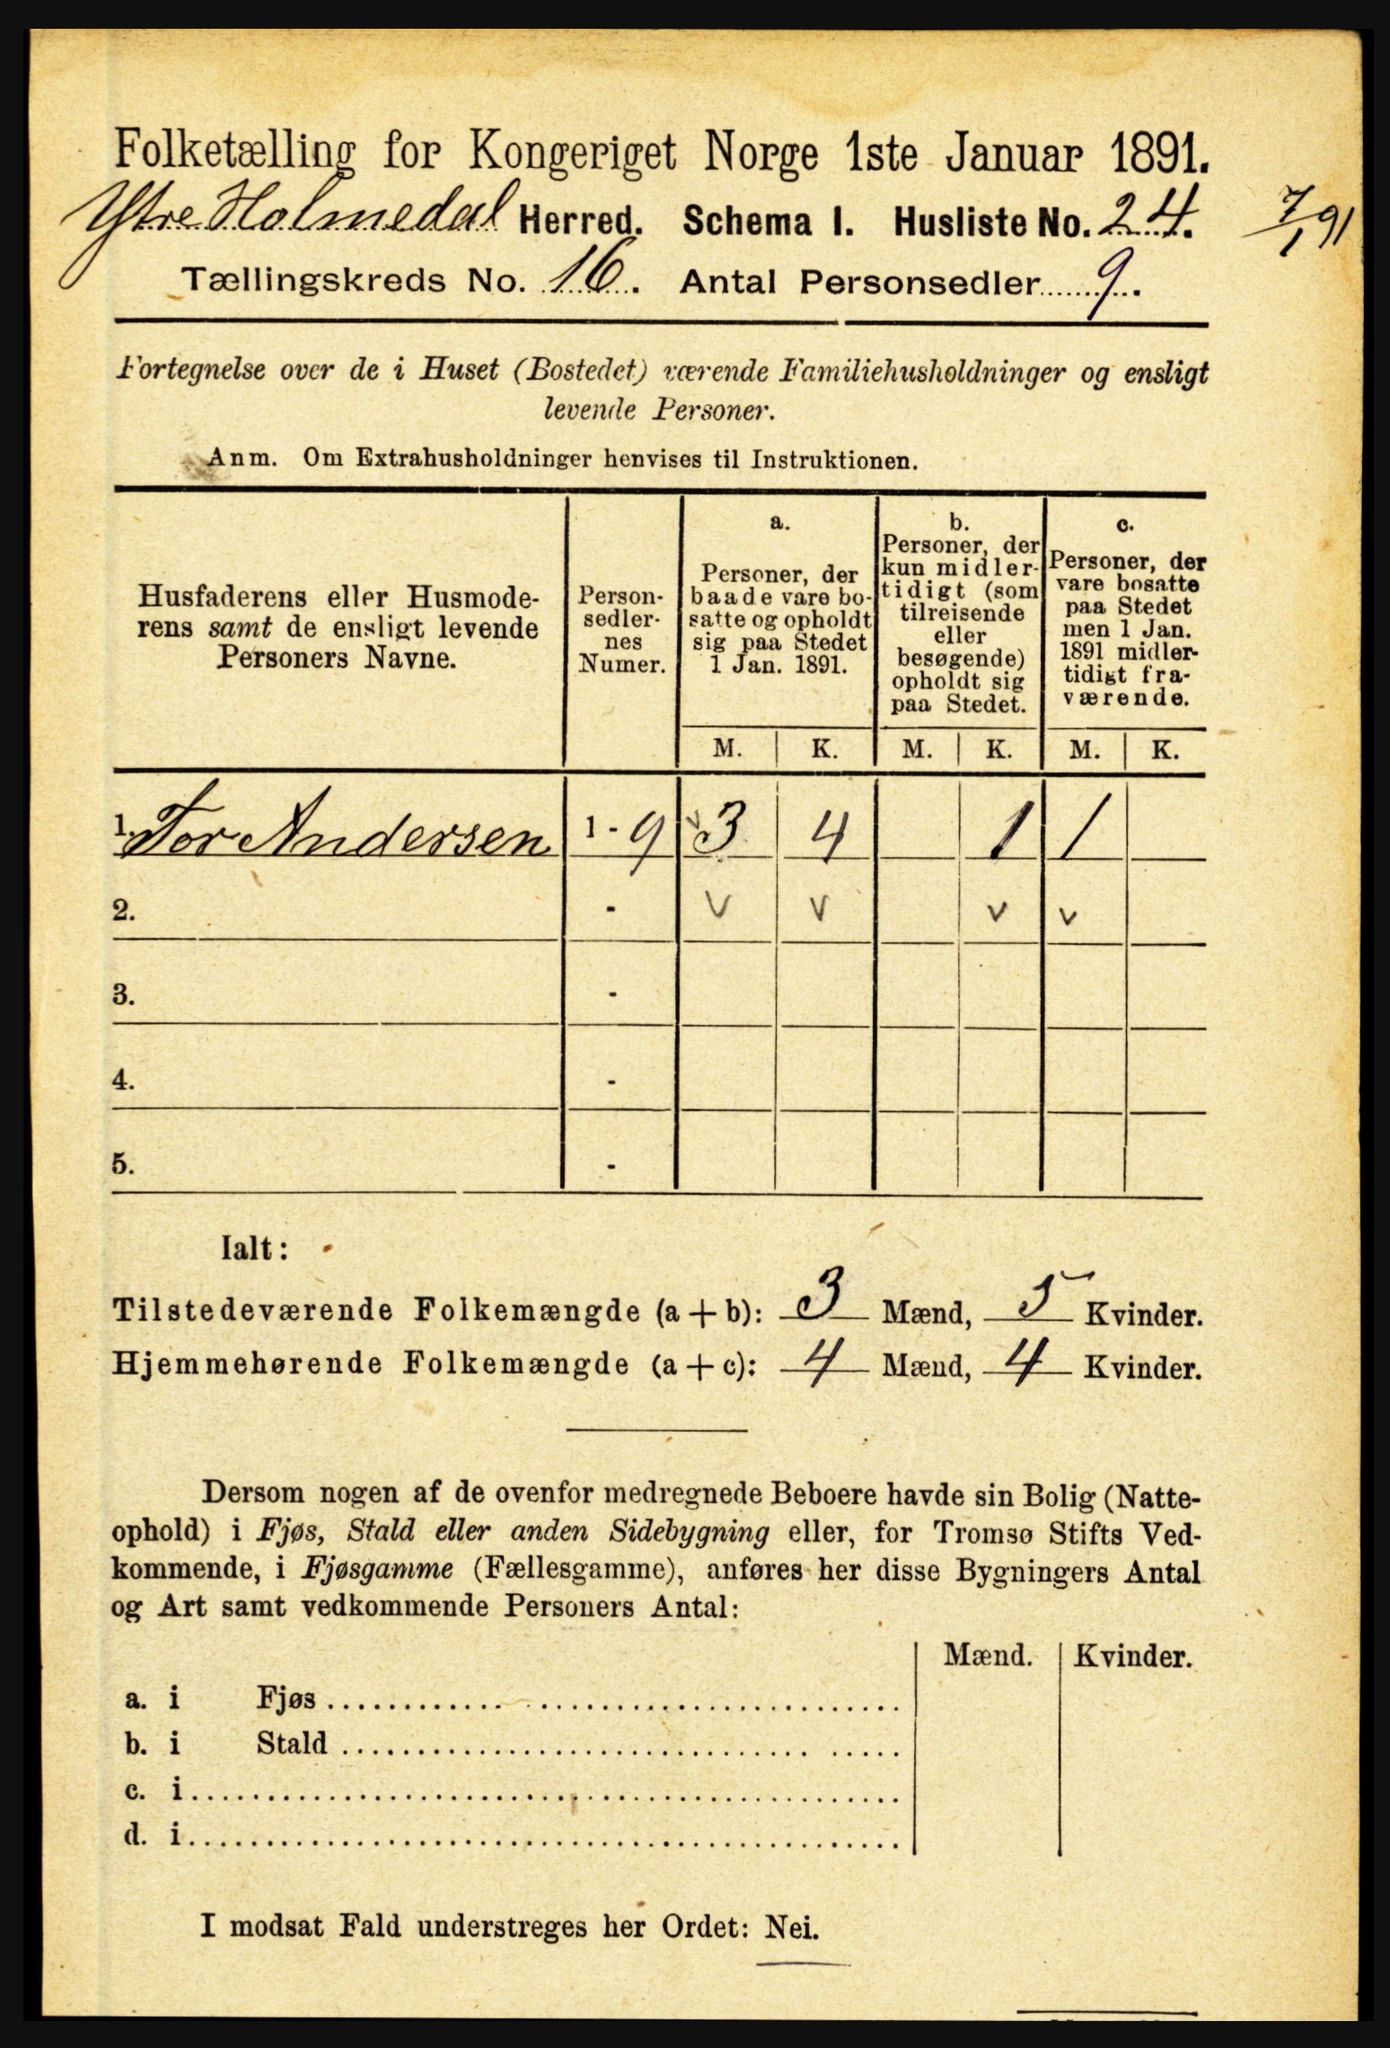 Folketælling for Kongeriget Norge 1ste Januar 1891.
Ytre Holmedal Herred. Schema I. Husliste No. 24. 7/1 91
Tællingskreds No. 16. Antal Personsedler 9.
Fortegnelse over de i Huset (Bostedet) værende Familiehusholdninger og ensligt
levende Personer.
Anm. Om Extrahusholdninger henvises til Instruktionen.
Husfaderens eller Husmode-
rens samt de ensligt levende
Personers Navne.
Person-
sedler-
nes
Numer.
a.
Personer, der
baade vare bo-
satte og opholdt
sig paa Stedet
1 Jan. 1891.
b.
Personer, der
kun midler-
tidigt (som
tilreisende
eller
besøgende)
opholdt sig
paa Stedet.
c.
Personer, der
vare bosatte
paa Stedet
men 1 Jan.
1891 midler-
tidigt fra-
værende.
M. K. M. K. M. K.
1. Tor Andersen 1 - 9 v 3 4 1 1
2. - v v v v
3. -
4. -
5. -
Ialt:
Tilstedeværende Folkemængde (a + b): 3 Mænd, 5 Kvinder.
Hjemmehørende Folkemængde (a + c): 4 Mænd, 4 Kvinder.
Dersom nogen af de ovenfor medregnede Beboere havde sin Bolig (Natte-
ophold) i Fjøs, Stald eller anden Sidebygning eller, for Tromsø Stifts Ved-
kommende, i Fjøsgamme (Fællesgamme), anføres her disse Bygningers Antal
og Art samt vedkommende Personers Antal:
Mænd. Kvinder.
a. i Fjøs
b. i Stald
c. i
d. i
I modsat Fald understreges her Ordet: Nei.